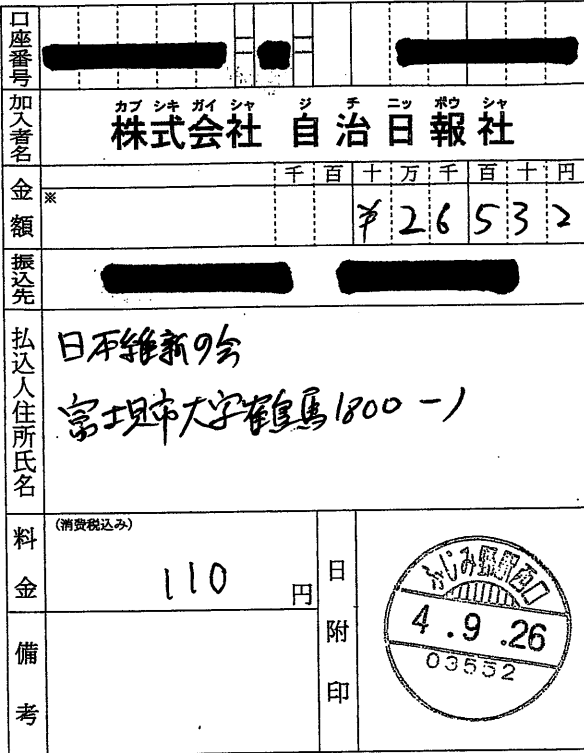 口座番号
加入者名
カブ シキ ガイ シャ ジ チ ニッ ポウ シャ
株式会社 自治日報社
金額
千 百 十 万 千 百 十 円
※
¥ 2 6 5 3 2
振込先
払込人住所氏名
日本維新の会
富士見市大字鶴馬1800-1
料金
(消費税込み)
110 円
備考
日附印
ふじみ野駅西口
4.9.26
03552